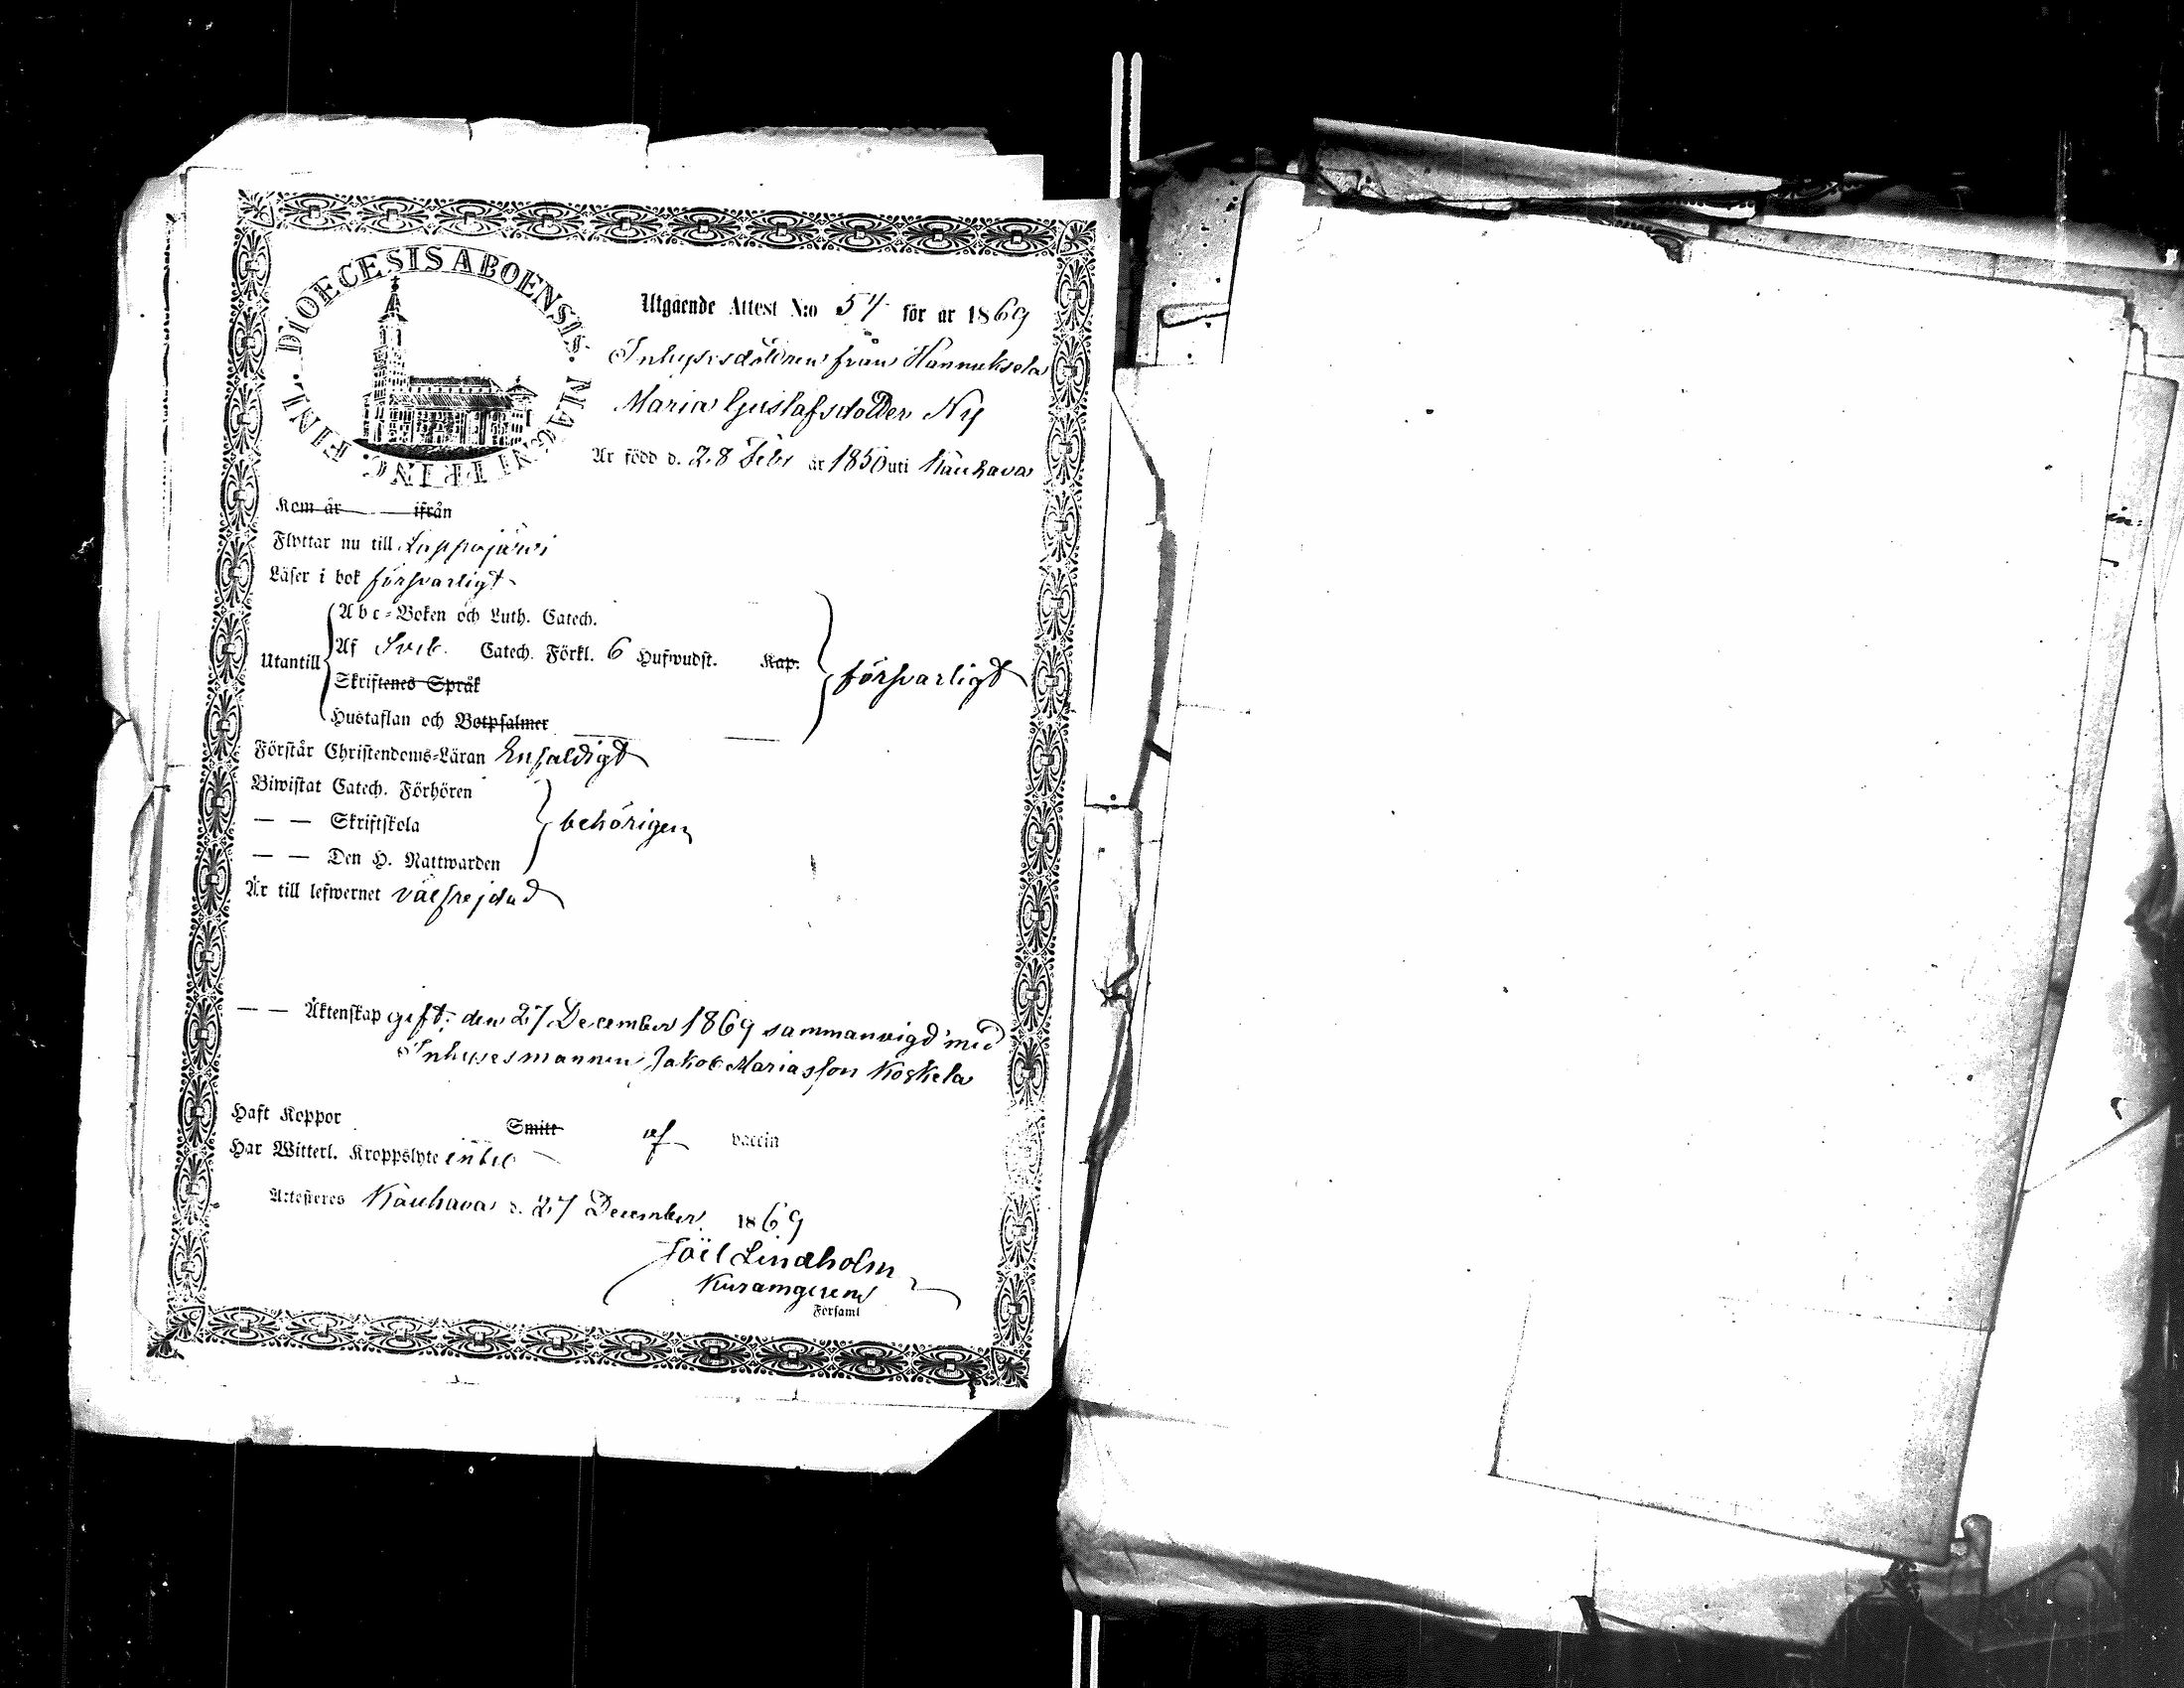 DIOECESIS ABOENSIS. MAGNI PRINC. FINL.
Utgående Attest N:o 54 för år 1869
Inhysesdottren från Hannuksela
Maria Gustafsdotter Ny
Är född d. 28 Febr år 1850 uti Kauhava
Kom år ifrån
Flyttar nu till Lappajärvi
Läser i bok försvarligt
Abc-Boken och Luth. Catech.
Utantill Af Sveb. Catech. Förkl. 6 Hufwudst. Kap. försvarligt
Skriftenes Språk
Hustaflan och Botpsalmer
Förstår Christendoms-Läran Enfaldigt
Biwistat Catech. Förhören
— — Skriftskola behörigen
— — Den H. Nattwarden
Är till lefwernet välfrejdad
— — Äktenskap gift; den 27 December 1869 sammanvigd med
Inhysesmannen Jakob Mariasson Koskela
Haft Koppor Smitt af vaccin
Har Witterl. Kroppslyte intet
Attesteres Kauhava d. 27 December 1869
Joel Lindholm
Församl